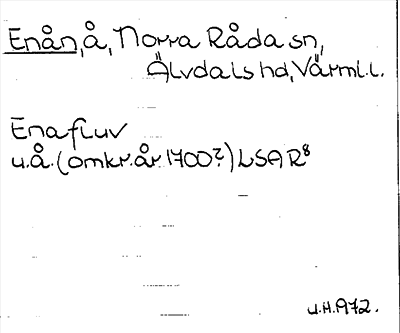 Enån, å, Norra Råda sn,
Älvdals hd, Värml.l.
Ena fluv
u.å. (omkr. år 1700?) LSA R8
U.H. 1972.